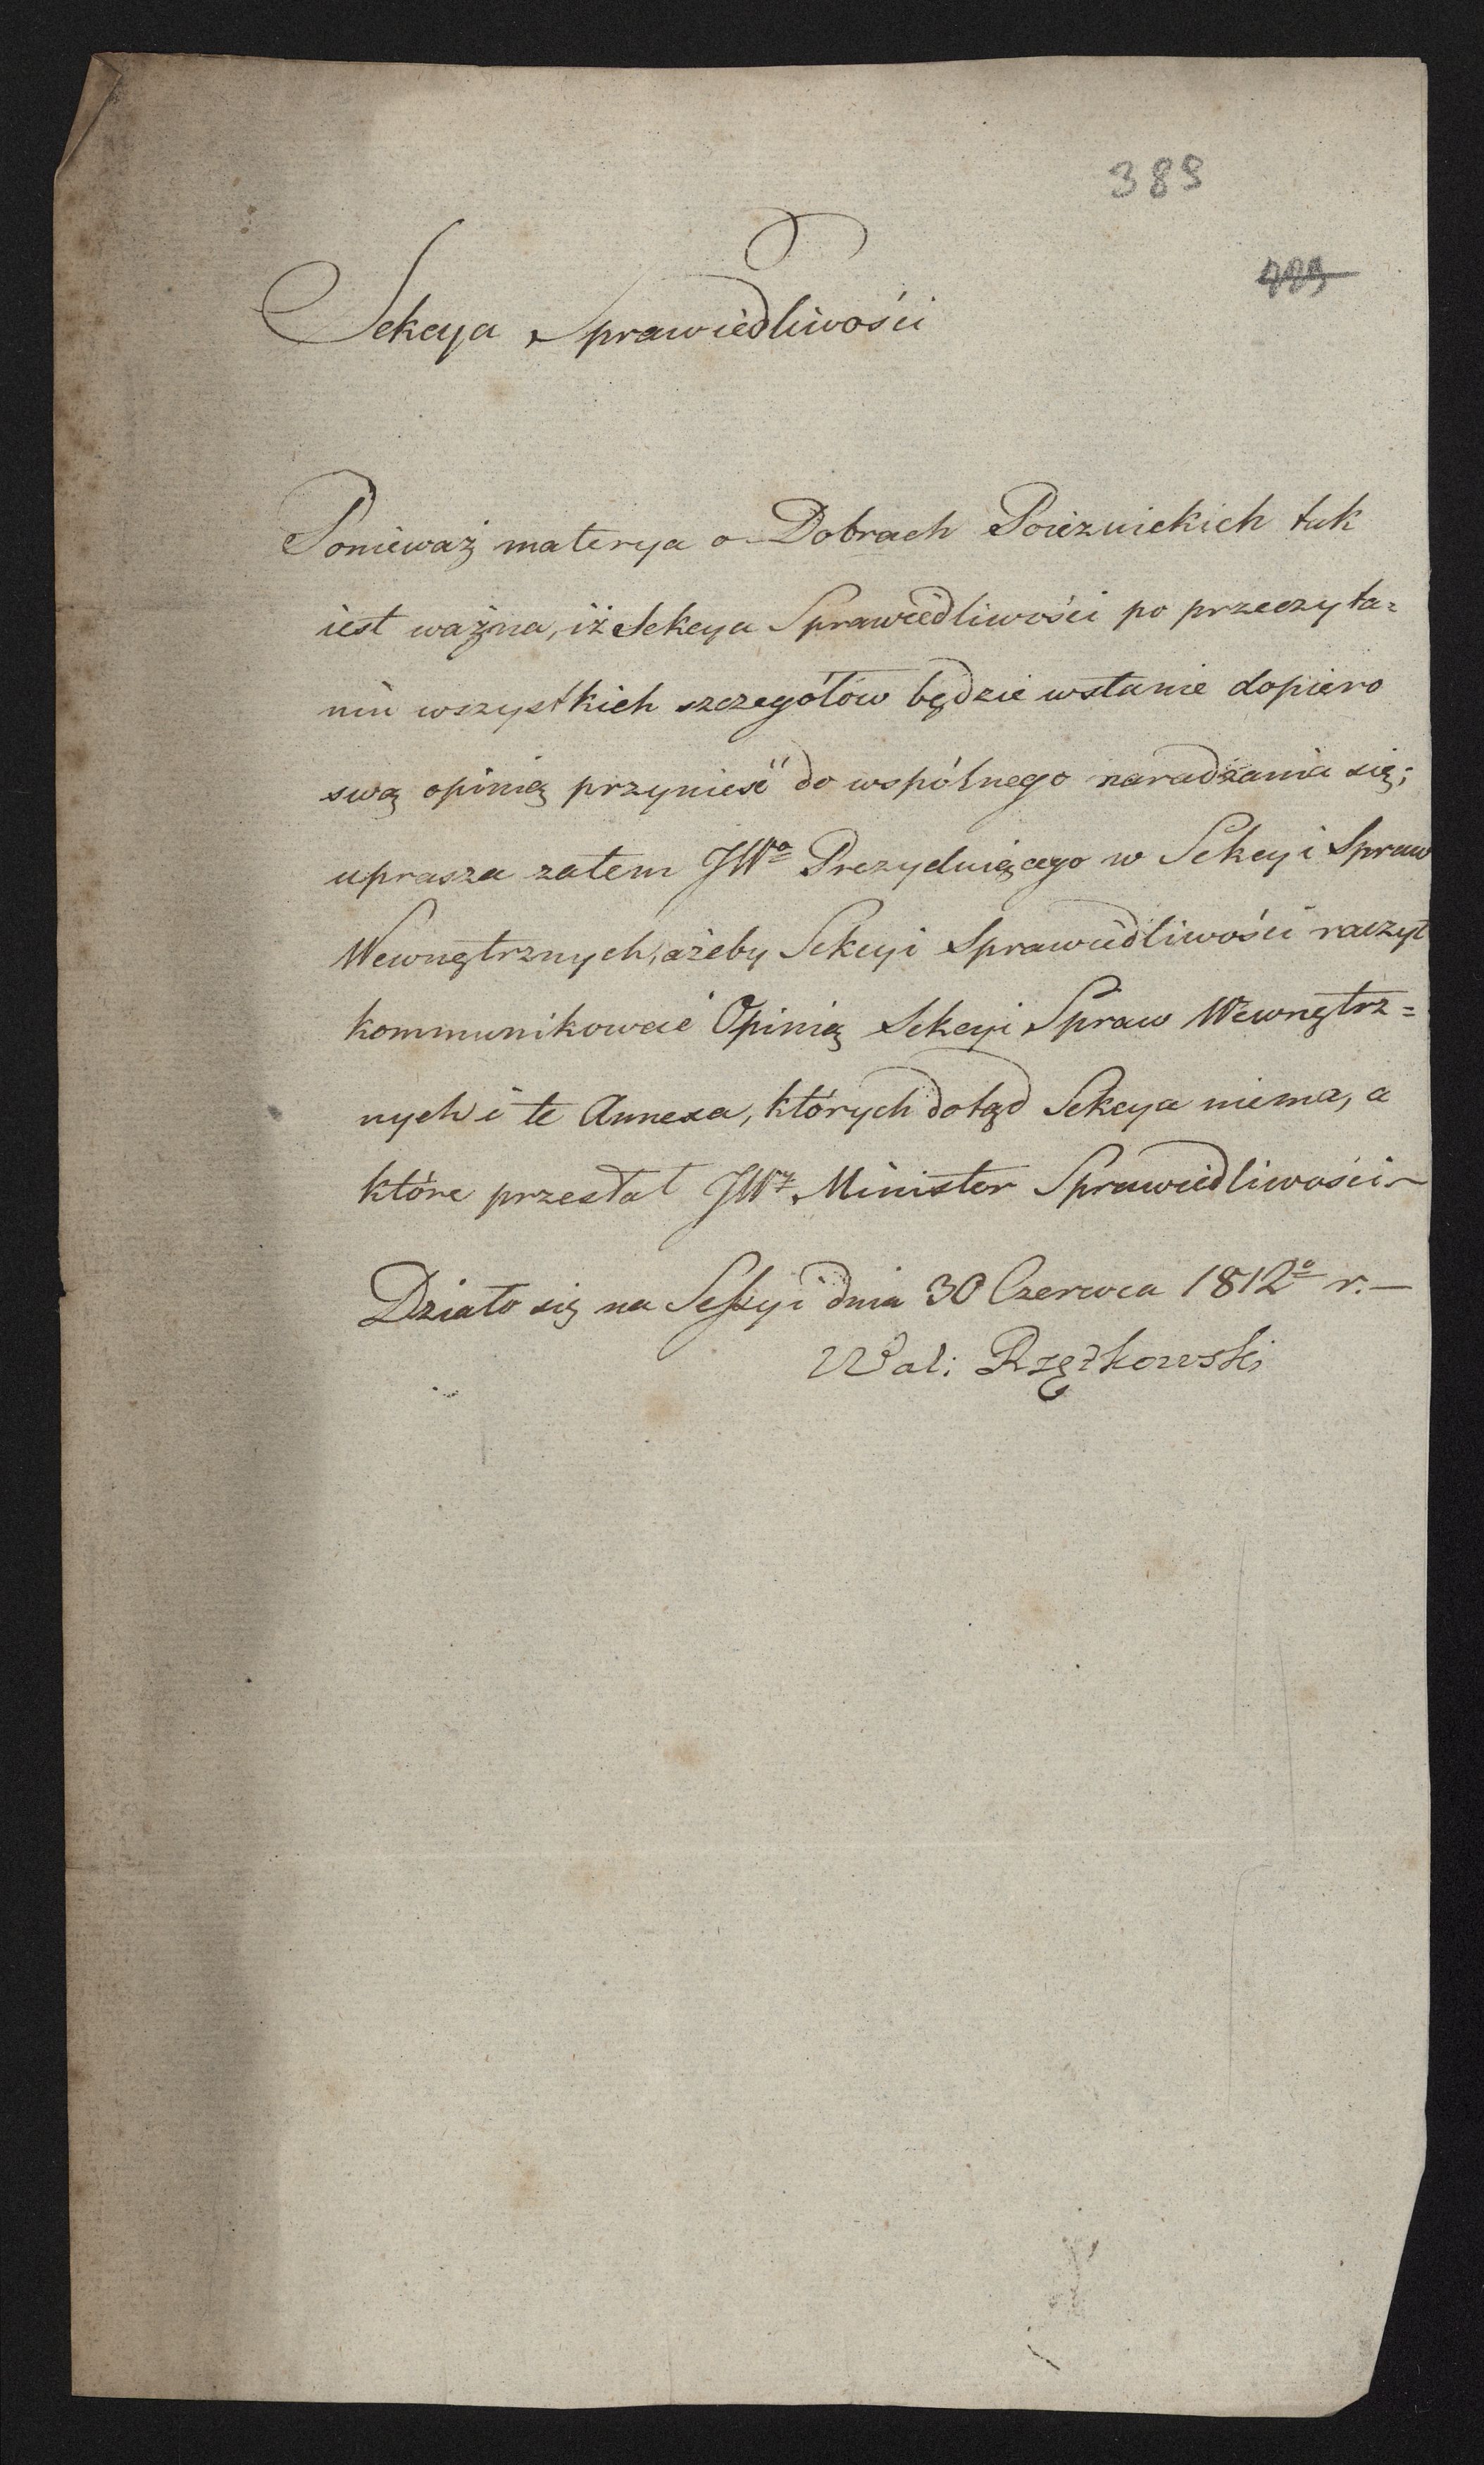 389
Sekcya Sprawiedliwości
Ponieważ materya o Dobrach Poiezuickich tak
iest ważna, iż Sekcya Sprawiedliwości po przeczyta=
niu wszystkich szczegółów będzie wstanie dopiero
swą opinią przynieść do wspólnego naradzania się;
uprasza zatem JWo Prezyduiącego w Sekcyi Spraw
Wewnętrznych, ażeby Sekcyi Sprawiedliwości raczył
kommunikować Opinią Sekcyi Spraw Wewnętrz=
nych i te Annexa, których dotąd Sekcya niema, a
które przesłał JWz Minister Sprawiedliwości~
Działo się na Sessyi dnia 30 Czerwca 1812o r.—
Wal: Rzętkowski